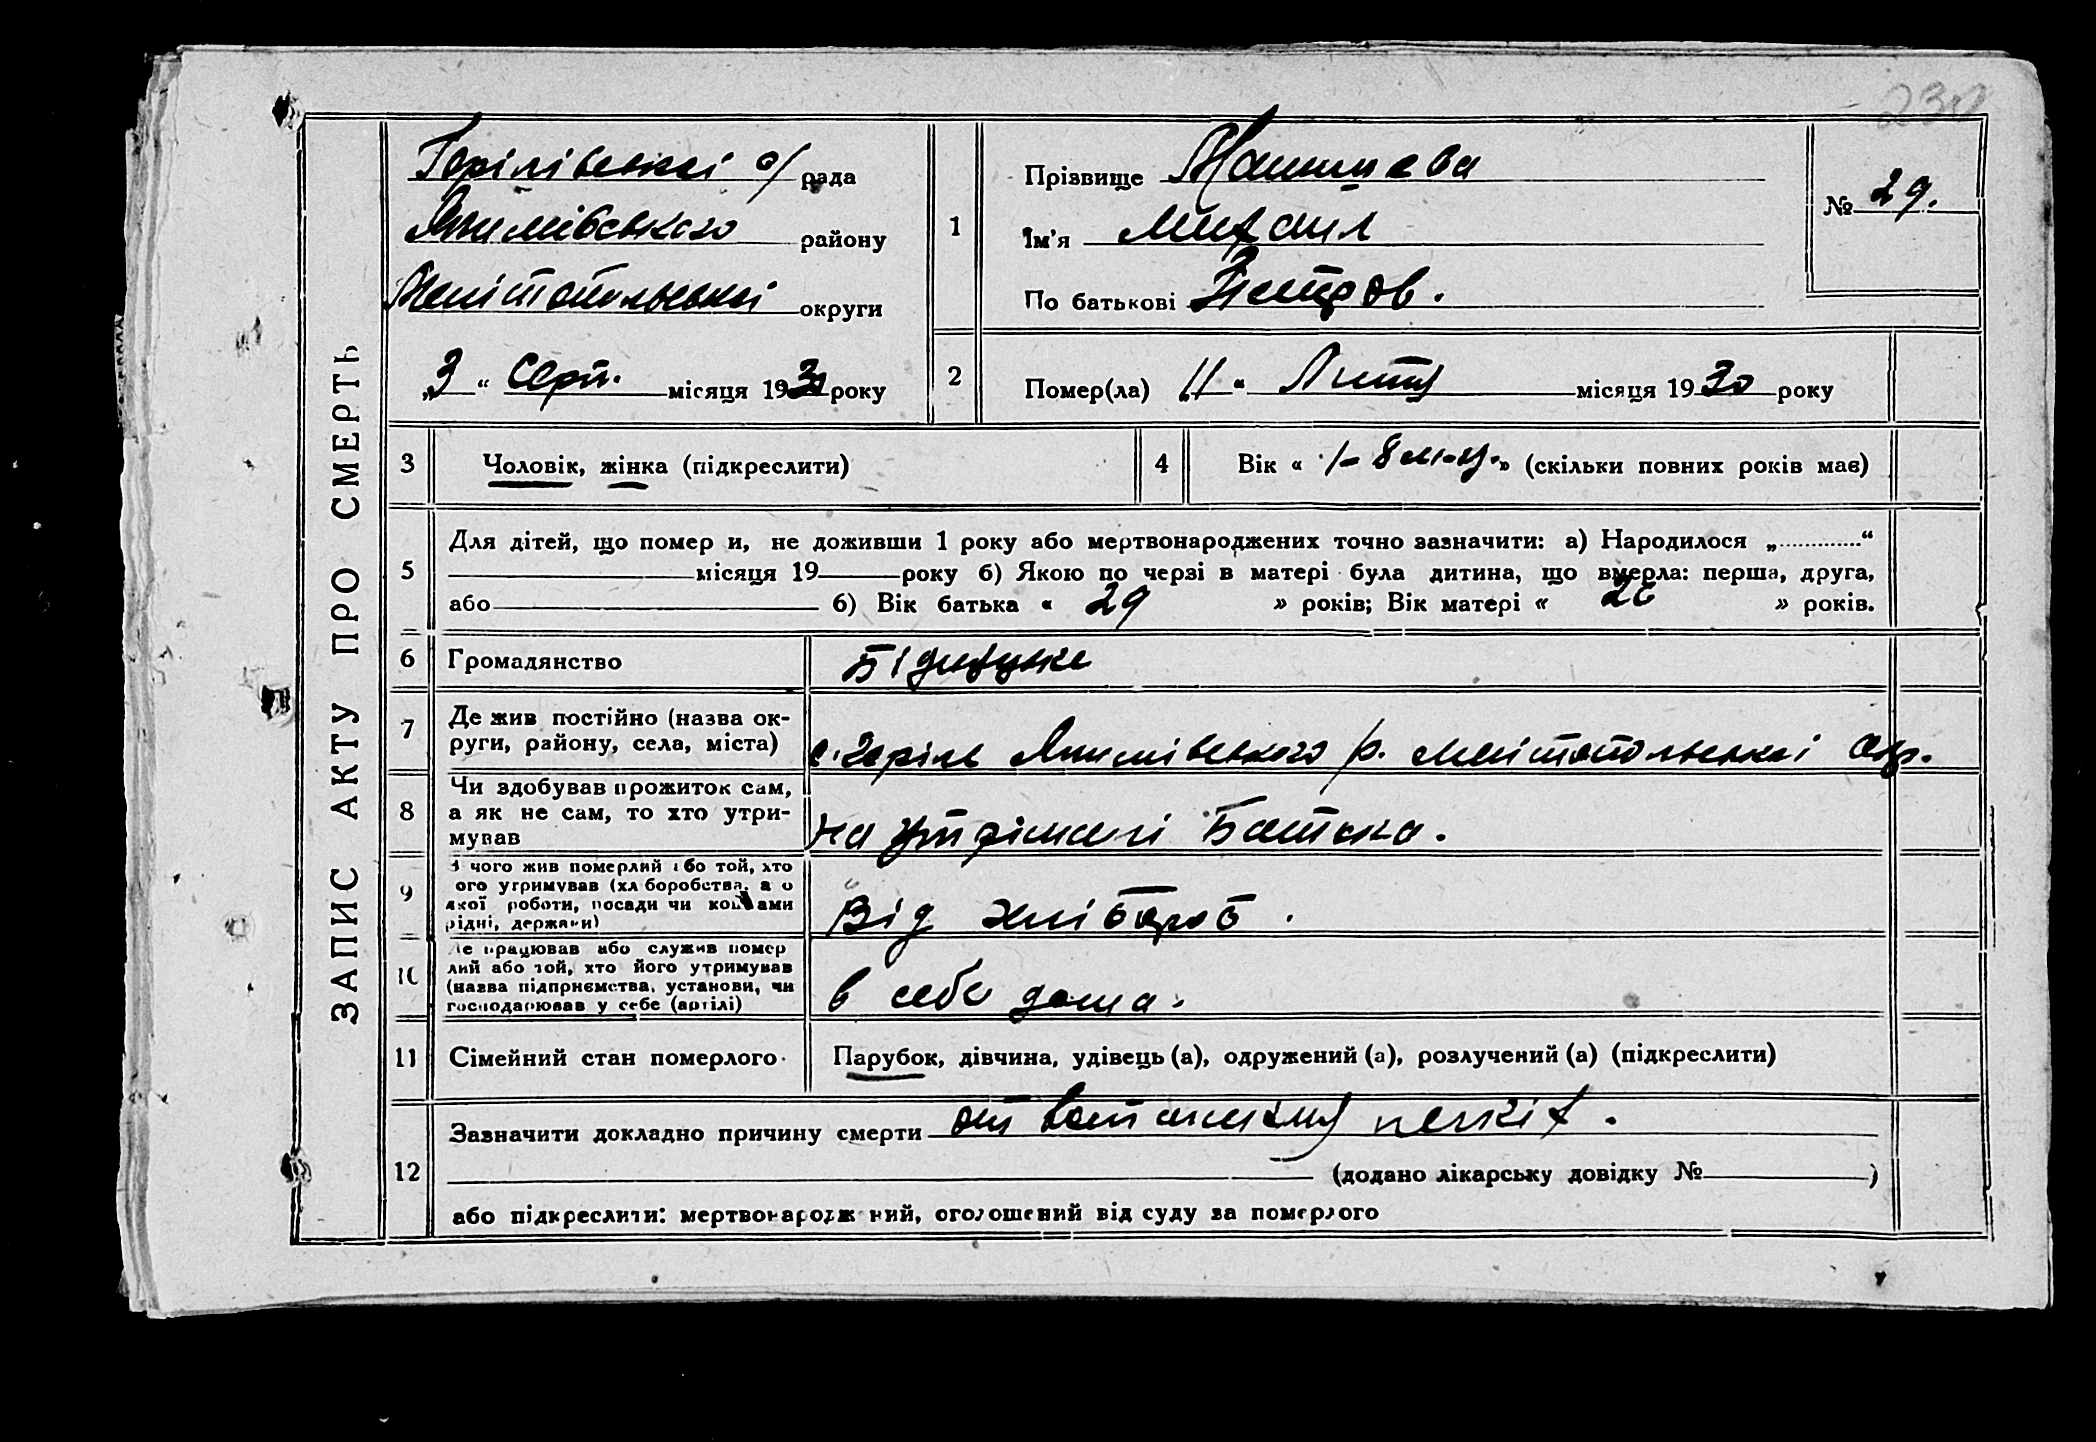 230
ЗАПИС АКТУ ПРО СМЕРТЬ
рада
Якимівського району
Мелітопольської округи
„3“ серп. місяця 1930 року
1
Прізвище
Ім'я Михаил
По батькові Петров.
№ 29.
2
Помер(ла) „11“ Лют місяця 1930 року
3
Чоловік, жінка (підкреслити)
4
Вік « 1-8 м-ц. » (скільки повних років має)
5
Для дітей, що помер и, не доживши 1 року або мертвонароджених точно зазначити: а) Народилося „.............“
місяця 19 року б) Якою по черзі в матері була дитина, що вмерла: перша, друга,
або б) Вік батька « 29 » років; Вік матері « » років.
6
Громадянство
7
Де жив постійно (назва ок-
руги, району, села, міста)
Якимівського р. Мелітопольської окр.
8
Чи здобував прожиток сам,
а як не сам, то хто утри-
мував
на утрімані Батька.
9
З чого жив померлий або той, хто
ого утримував (хл боробства, а о
якої роботи, посади чи коштами
рідні, держави)
Від хлібороб.
10
Де працював або служив помер
лий або той, хто його утримував
(назва підприємства, установи, чи
господарював у себе (артілі)
в себе дома.
11
Сімейний стан померлого
Парубок, дівчина, удівець (а), одружений (а), розлучений (а) (підкреслити)
12
Зазначити докладно причину смерти от легкіх.
(додано лікарську довідку № )
або підкреслити: мертвонародж ний, оголошений від суду за померлого